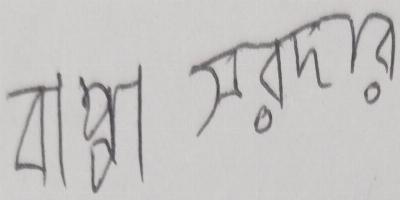 বাপ্পা সরদার